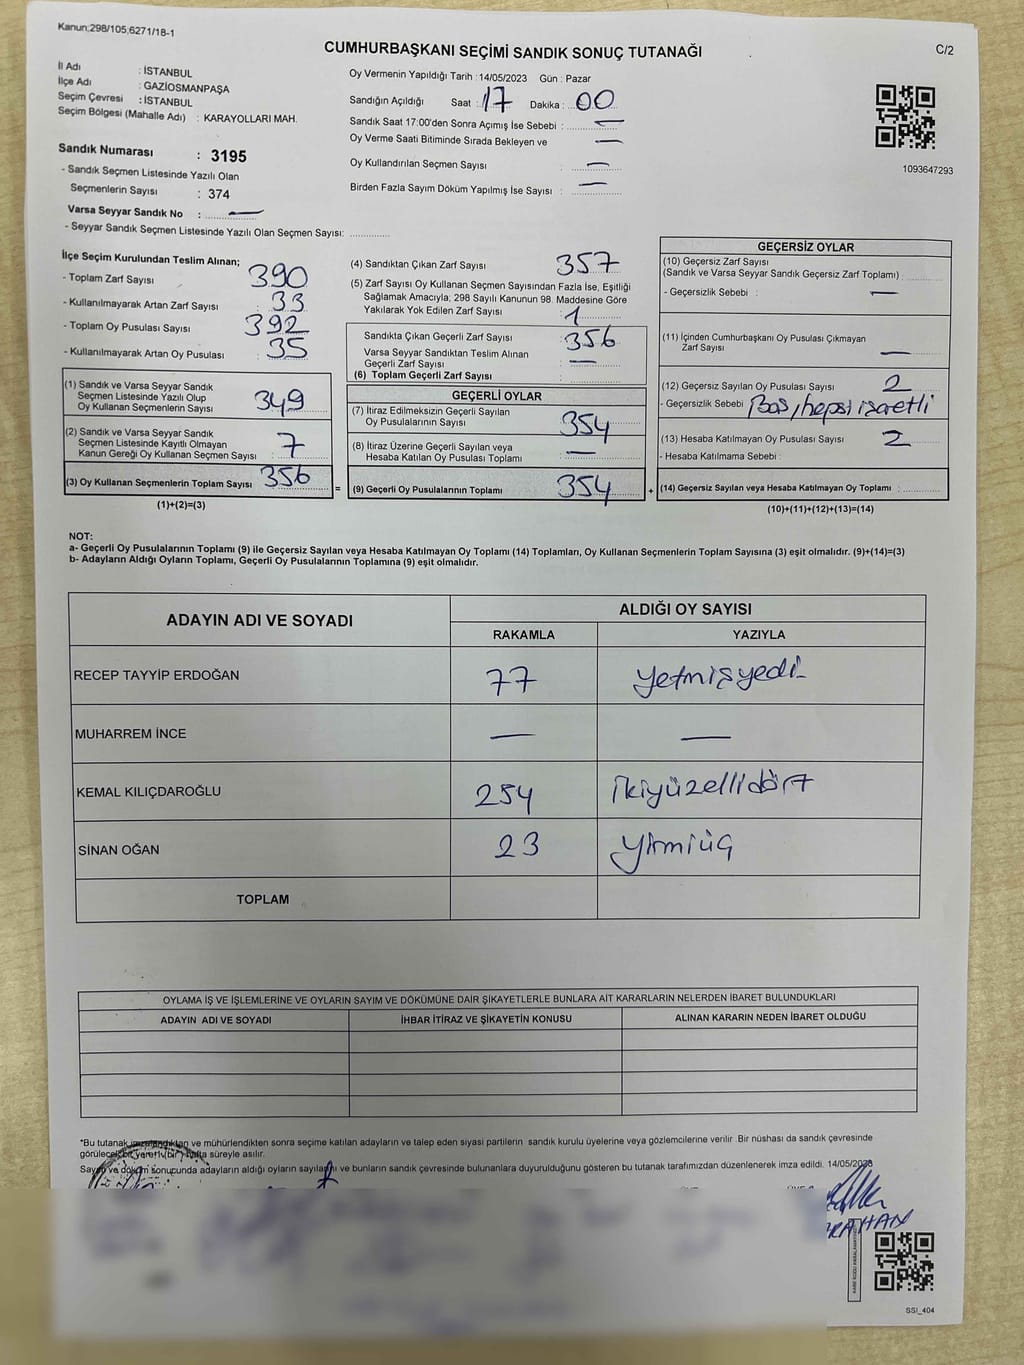 Kanun;298/105,6271/18-1
CUMHURBAŞKANI SEÇİMİ SANDIK SONUÇ TUTANAĞI
C/2
İl Adı : İSTANBUL
İlçe Adı : GAZİOSMANPAŞA
Seçim Çevresi : İSTANBUL
Seçim Bölgesi (Mahalle Adı) : KARAYOLLARI MAH.
Sandık Numarası : 3195
- Sandık Seçmen Listesinde Yazılı Olan
Seçmenlerin Sayısı : 374
Varsa Seyyar Sandık No : —
- Seyyar Sandık Seçmen Listesinde Yazılı Olan Seçmen Sayısı: ............
Oy Vermenin Yapıldığı Tarih : 14/05/2023 Gün : Pazar
Sandığın Açıldığı Saat : 17 Dakika : 00
Sandık Saat 17:00'den Sonra Açımış İse Sebebi : —
Oy Verme Saati Bitiminde Sırada Bekleyen ve —
Oy Kullandırılan Seçmen Sayısı : —
Birden Fazla Sayım Döküm Yapılmış İse Sayısı : —
1093647293
İlçe Seçim Kurulundan Teslim Alınan;
- Toplam Zarf Sayısı : 390
- Kullanılmayarak Artan Zarf Sayısı : 33
- Toplam Oy Pusulası Sayısı : 392
- Kullanılmayarak Artan Oy Pusulası : 35
(1) Sandık ve Varsa Seyyar Sandık
Seçmen Listesinde Yazılı Olup
Oy Kullanan Seçmenlerin Sayısı : 349
(2) Sandık ve Varsa Seyyar Sandık
Seçmen Listesinde Kayıtlı Olmayan
Kanun Gereği Oy Kullanan Seçmen Sayısı : 7
(3) Oy Kullanan Seçmenlerin Toplam Sayısı : 356
(1)+(2)=(3)
=
(4) Sandıktan Çıkan Zarf Sayısı : 357
(5) Zarf Sayısı Oy Kullanan Seçmen Sayısından Fazla İse, Eşitliği
Sağlamak Amacıyla, 298 Sayılı Kanunun 98. Maddesine Göre
Yakılarak Yok Edilen Zarf Sayısı : 1
Sandıkta Çıkan Geçerli Zarf Sayısı : 356
Varsa Seyyar Sandıktan Teslim Alınan
Geçerli Zarf Sayısı : —
(6) Toplam Geçerli Zarf Sayısı :
GEÇERLİ OYLAR
(7) İtiraz Edilmeksizin Geçerli Sayılan
Oy Pusulalarının Sayısı : 354
(8) İtiraz Üzerine Geçerli Sayılan veya
Hesaba Katılan Oy Pusulası Toplamı : —
(9) Geçerli Oy Pusulalarının Toplamı : 354
+
GEÇERSİZ OYLAR
(10) Geçersiz Zarf Sayısı
(Sandık ve Varsa Seyyar Sandık Geçersiz Zarf Toplamı) :
- Geçersizlik Sebebi : —
(11) İçinden Cumhurbaşkanı Oy Pusulası Çıkmayan
Zarf Sayısı : —
(12) Geçersiz Sayılan Oy Pusulası Sayısı : 2
- Geçersizlik Sebebi : Boş/hepsi işaretli
(13) Hesaba Katılmayan Oy Pusulası Sayısı : 2
- Hesaba Katılmama Sebebi :
(14) Geçersiz Sayılan veya Hesaba Katılmayan Oy Toplamı :
(10)+(11)+(12)+(13)=(14)
NOT:
a- Geçerli Oy Pusulalarının Toplamı (9) ile Geçersiz Sayılan veya Hesaba Katılmayan Oy Toplamı (14) Toplamları, Oy Kullanan Seçmenlerin Toplam Sayısına (3) eşit olmalıdır. (9)+(14)=(3)
b- Adayların Aldığı Oyların Toplamı, Geçerli Oy Pusulalarının Toplamına (9) eşit olmalıdır.
ADAYIN ADI VE SOYADI ALDIĞI OY SAYISI
RAKAMLA YAZIYLA
RECEP TAYYİP ERDOĞAN 77 Yetmişyedi
MUHARREM İNCE — —
KEMAL KILIÇDAROĞLU 254 İkiyüzellidört
SİNAN OĞAN 23 Yirmiüç
TOPLAM
OYLAMA İŞ VE İŞLEMLERİNE VE OYLARIN SAYIM VE DÖKÜMÜNE DAİR ŞİKAYETLERLE BUNLARA AİT KARARLARIN NELERDEN İBARET BULUNDUKLARI
ADAYIN ADI VE SOYADI İHBAR İTİRAZ VE ŞİKAYETİN KONUSU ALINAN KARARIN NEDEN İBARET OLDUĞU
*Bu tutanak imzalandıktan ve mühürlendikten sonra seçime katılan adayların ve talep eden siyasi partilerin sandık kurulu üyelerine veya gözlemcilerine verilir .Bir nüshası da sandık çevresinde
görülecek bir yere 1 (bir) hafta süreyle asılır.
Sayım ve döküm sonunda adayların aldığı oyların sayılarını ve bunların sandık çevresinde bulunanlara duyurulduğunu gösteren bu tutanak tarafımızdan düzenlenerek imza edildi. 14/05/2023
SSI_404